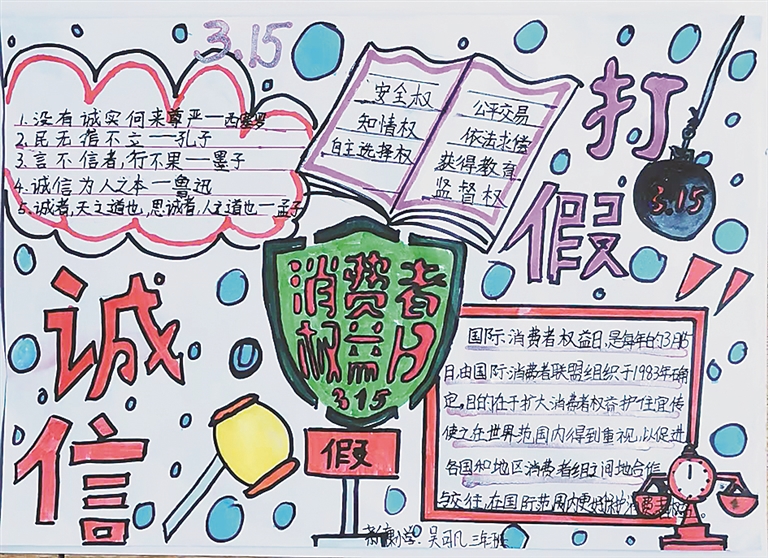 3.15
1.没有诚实何来尊严—西塞罗
2.民无指不立—孔子
3.言不信者,行不果—墨子
4.诚信为人之本—鲁迅
5.诚者,天之道也,思诚者,人之道也—孟子
安全权
知情权
自主选择权
公平交易
依法求偿
获得教育
监督权
打
假
3.15
诚
信
消费者
权益日
3.15
假
国际消费者权益日,是每年的3月15
日,由国际消费者联盟组织于1983年确
定,目的在于扩大消费者权益护宣传
使之在世界范围内得到重视,以促进
各国和地区消费者组之间地合作
与交往,在国际范围内更好护消费者
小学 三年班